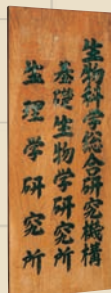 生物科学総合研究機構
基礎生物学研究所
生理学研究所